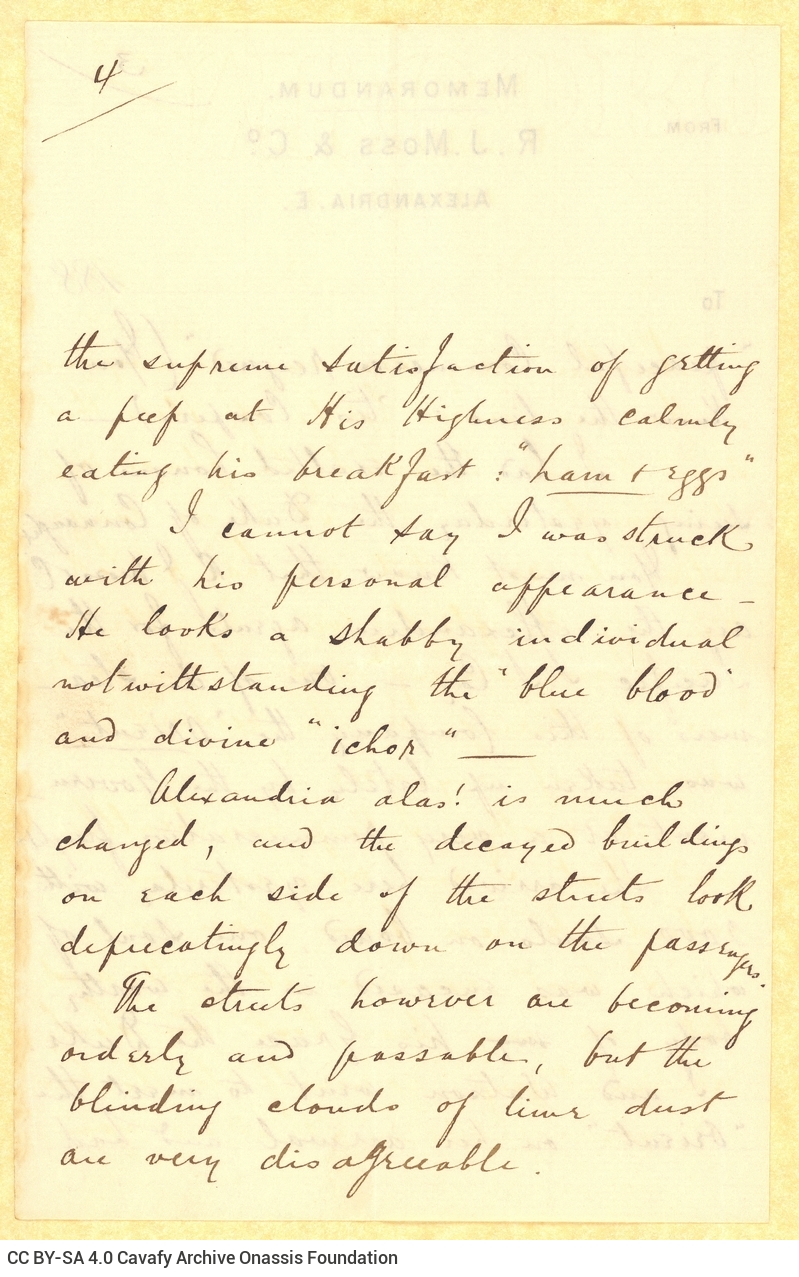 4
MEMORANDUM.
FROM
R. J. Moss & Co.
ALEXANDRIA. E.
188
To
the supreme satisfaction of getting
a peep at His Highness calmly
eating his breakfast: "ham & eggs"
I cannot say I was struck
with his personal appearance –
He looks a shabby individual
notwithstanding the "blue blood"
and divine "ichor" —
Alexandria alas! is much
changed, and the decayed buildings
on each side of the streets look
deprecatingly down on the passengers.
The streets however are becoming
orderly and passable, but the
blinding clouds of lime dust
are very disagreeable.
CC BY-SA 4.0 Cavafy Archive Onassis Foundation